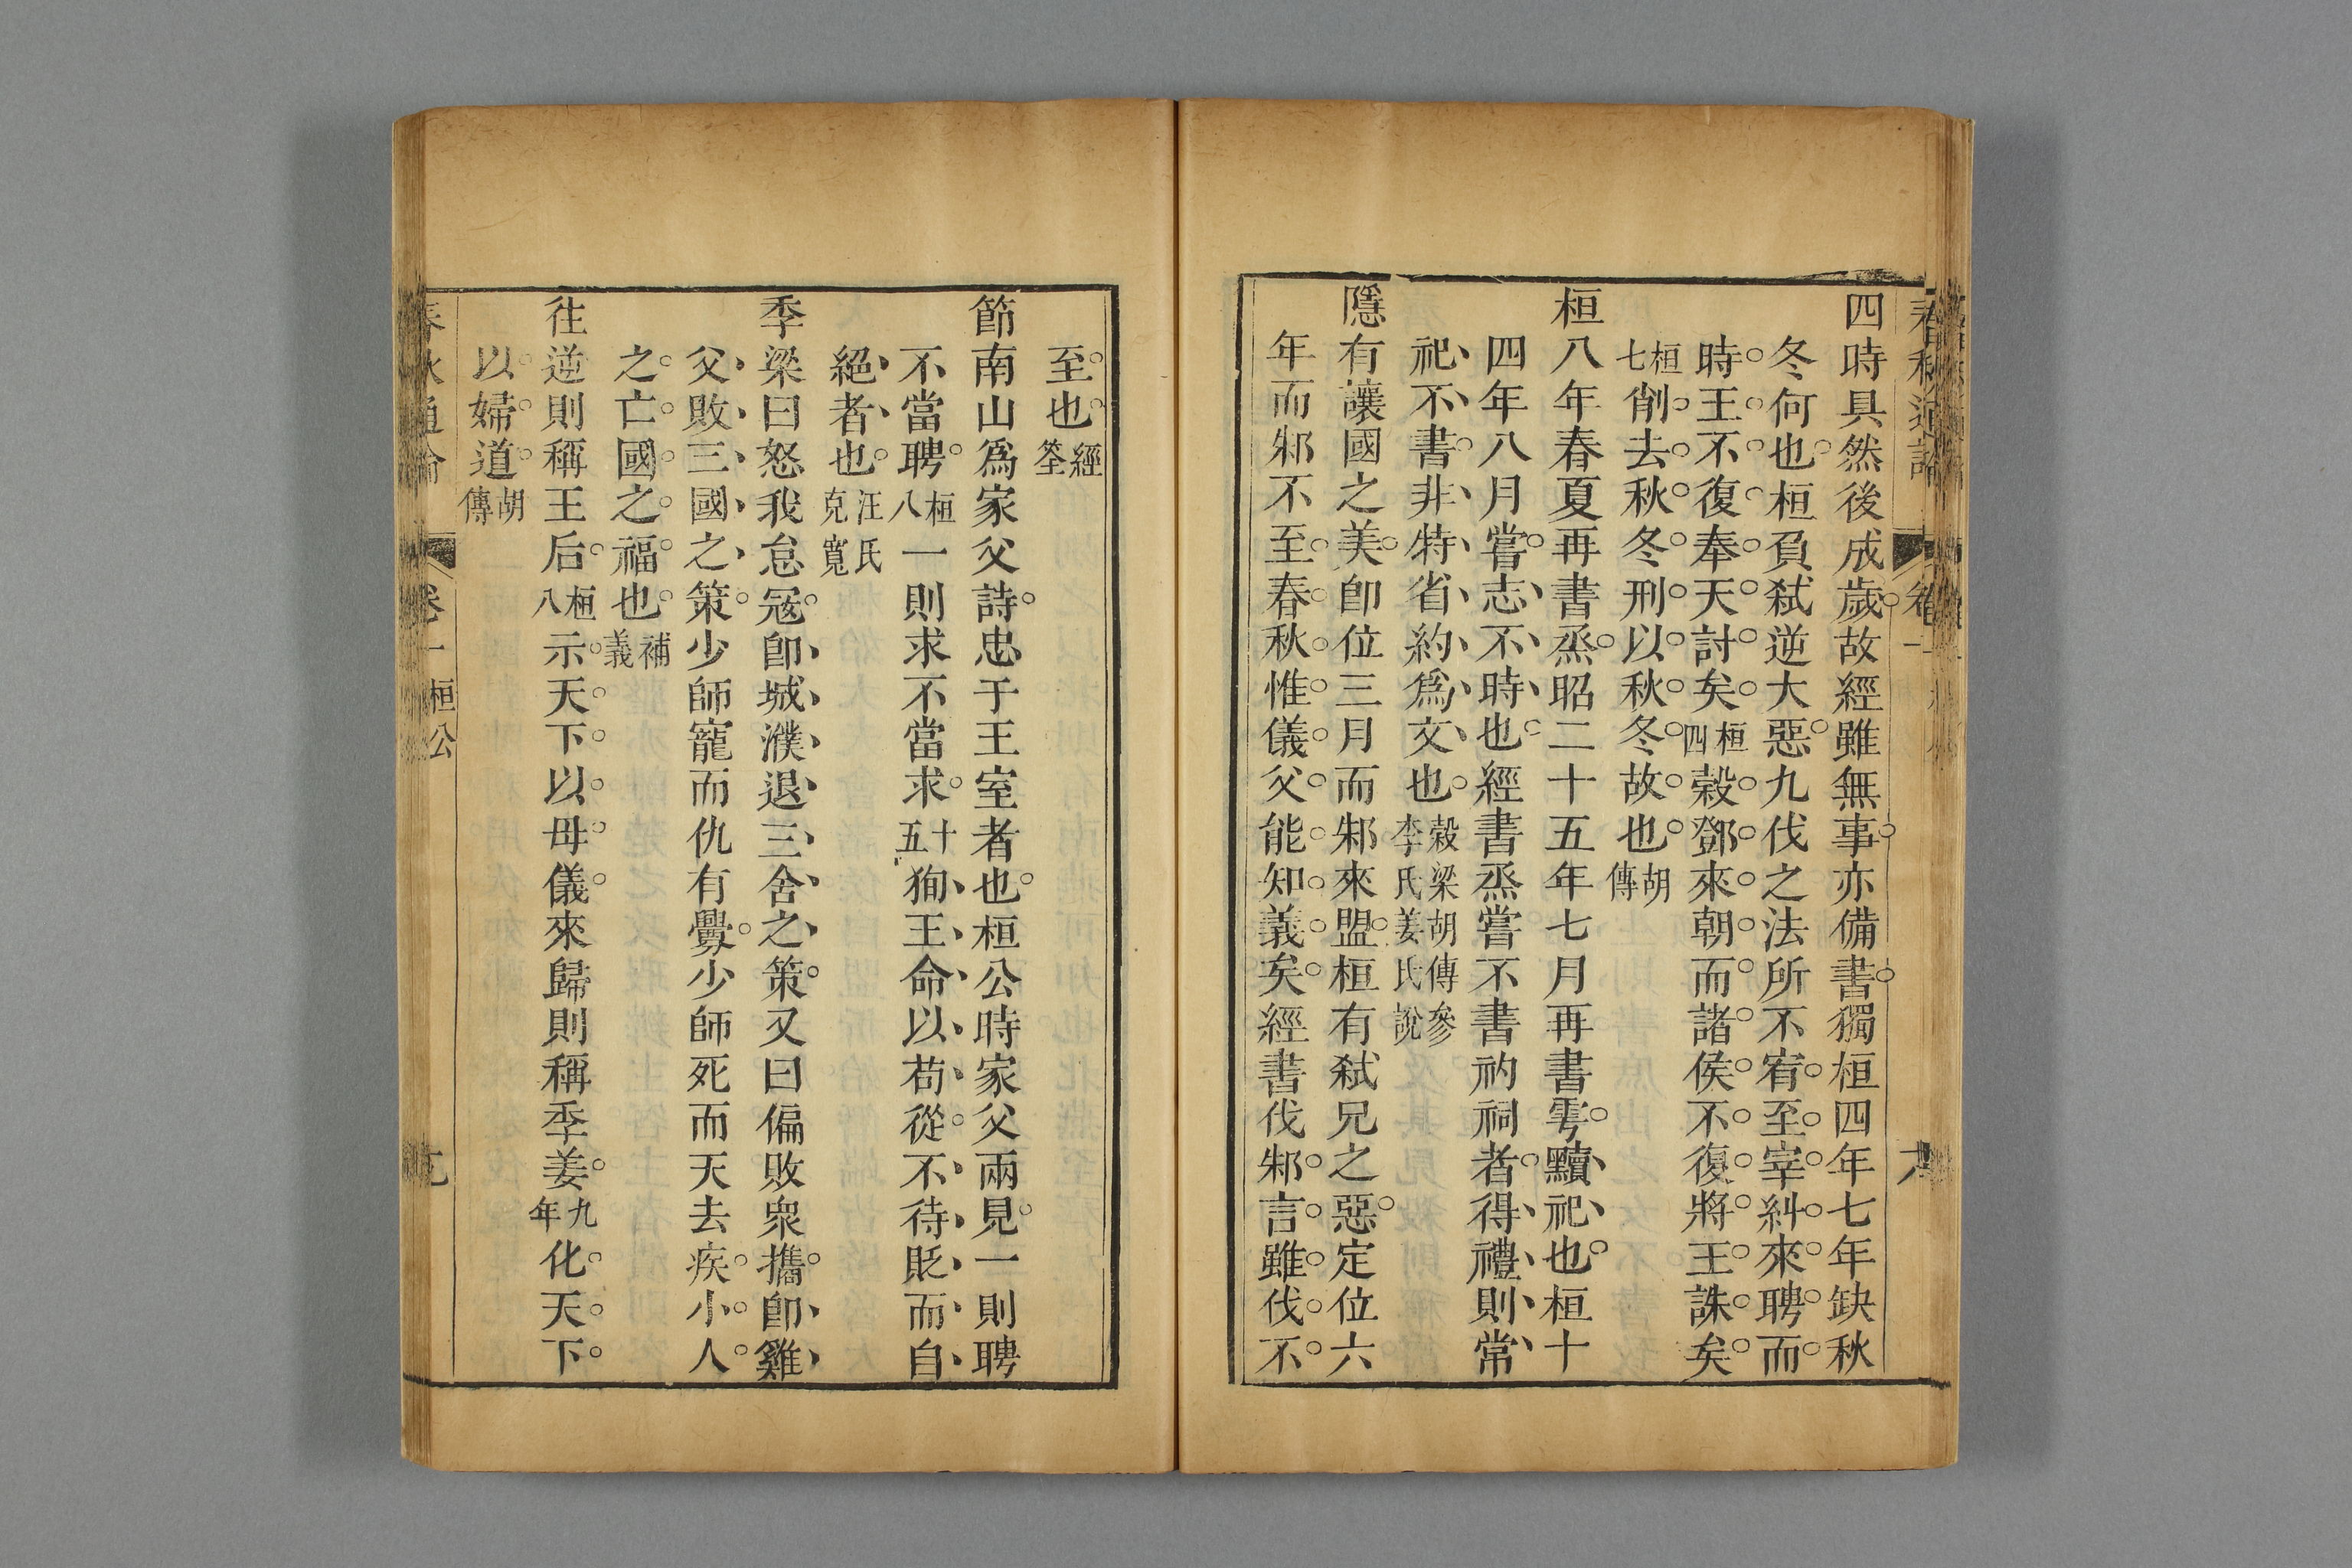 四時具然後成歲故經雖無事亦備書獨桓四年七年缺秋
冬何也桓負弑逆大惡九伐之法所不宥至宰糾來聘而
時王不復奉天討矣桓四穀鄧來朝而諸侯不復將王誅矣
桓七削去秋冬刑以秋冬故也胡傳
桓八年春夏再書烝昭二十五年七月再書雩黷祀也桓十
四年八月嘗志不時也經書烝嘗不書礿祠者得禮則常
祀不書非特省約爲文也穀梁胡傳參李氏姜氏說
隱有讓國之美卽位三月而邾來盟桓有弑兄之惡定位六
年而邾不至春秋惟儀父能知義矣經書伐邾言雖伐不
至也經筌
節南山爲家父詩忠于王室者也桓公時家父兩見一則聘
不當聘桓八一則求不當求十五狥王命以苟從不待貶而自
絕者也汪氏克寬
季梁曰怒我怠寇卽城濮退三舍之策又曰偏敗衆攜卽雞
父敗三國之策少師寵而仇有釁少師死而天去疾小人
之亡國之福也補義
往逆則稱王后桓八示天下以母儀來歸則稱季姜九年化天下
以婦道胡傳
春秋通論 卷一 桓公